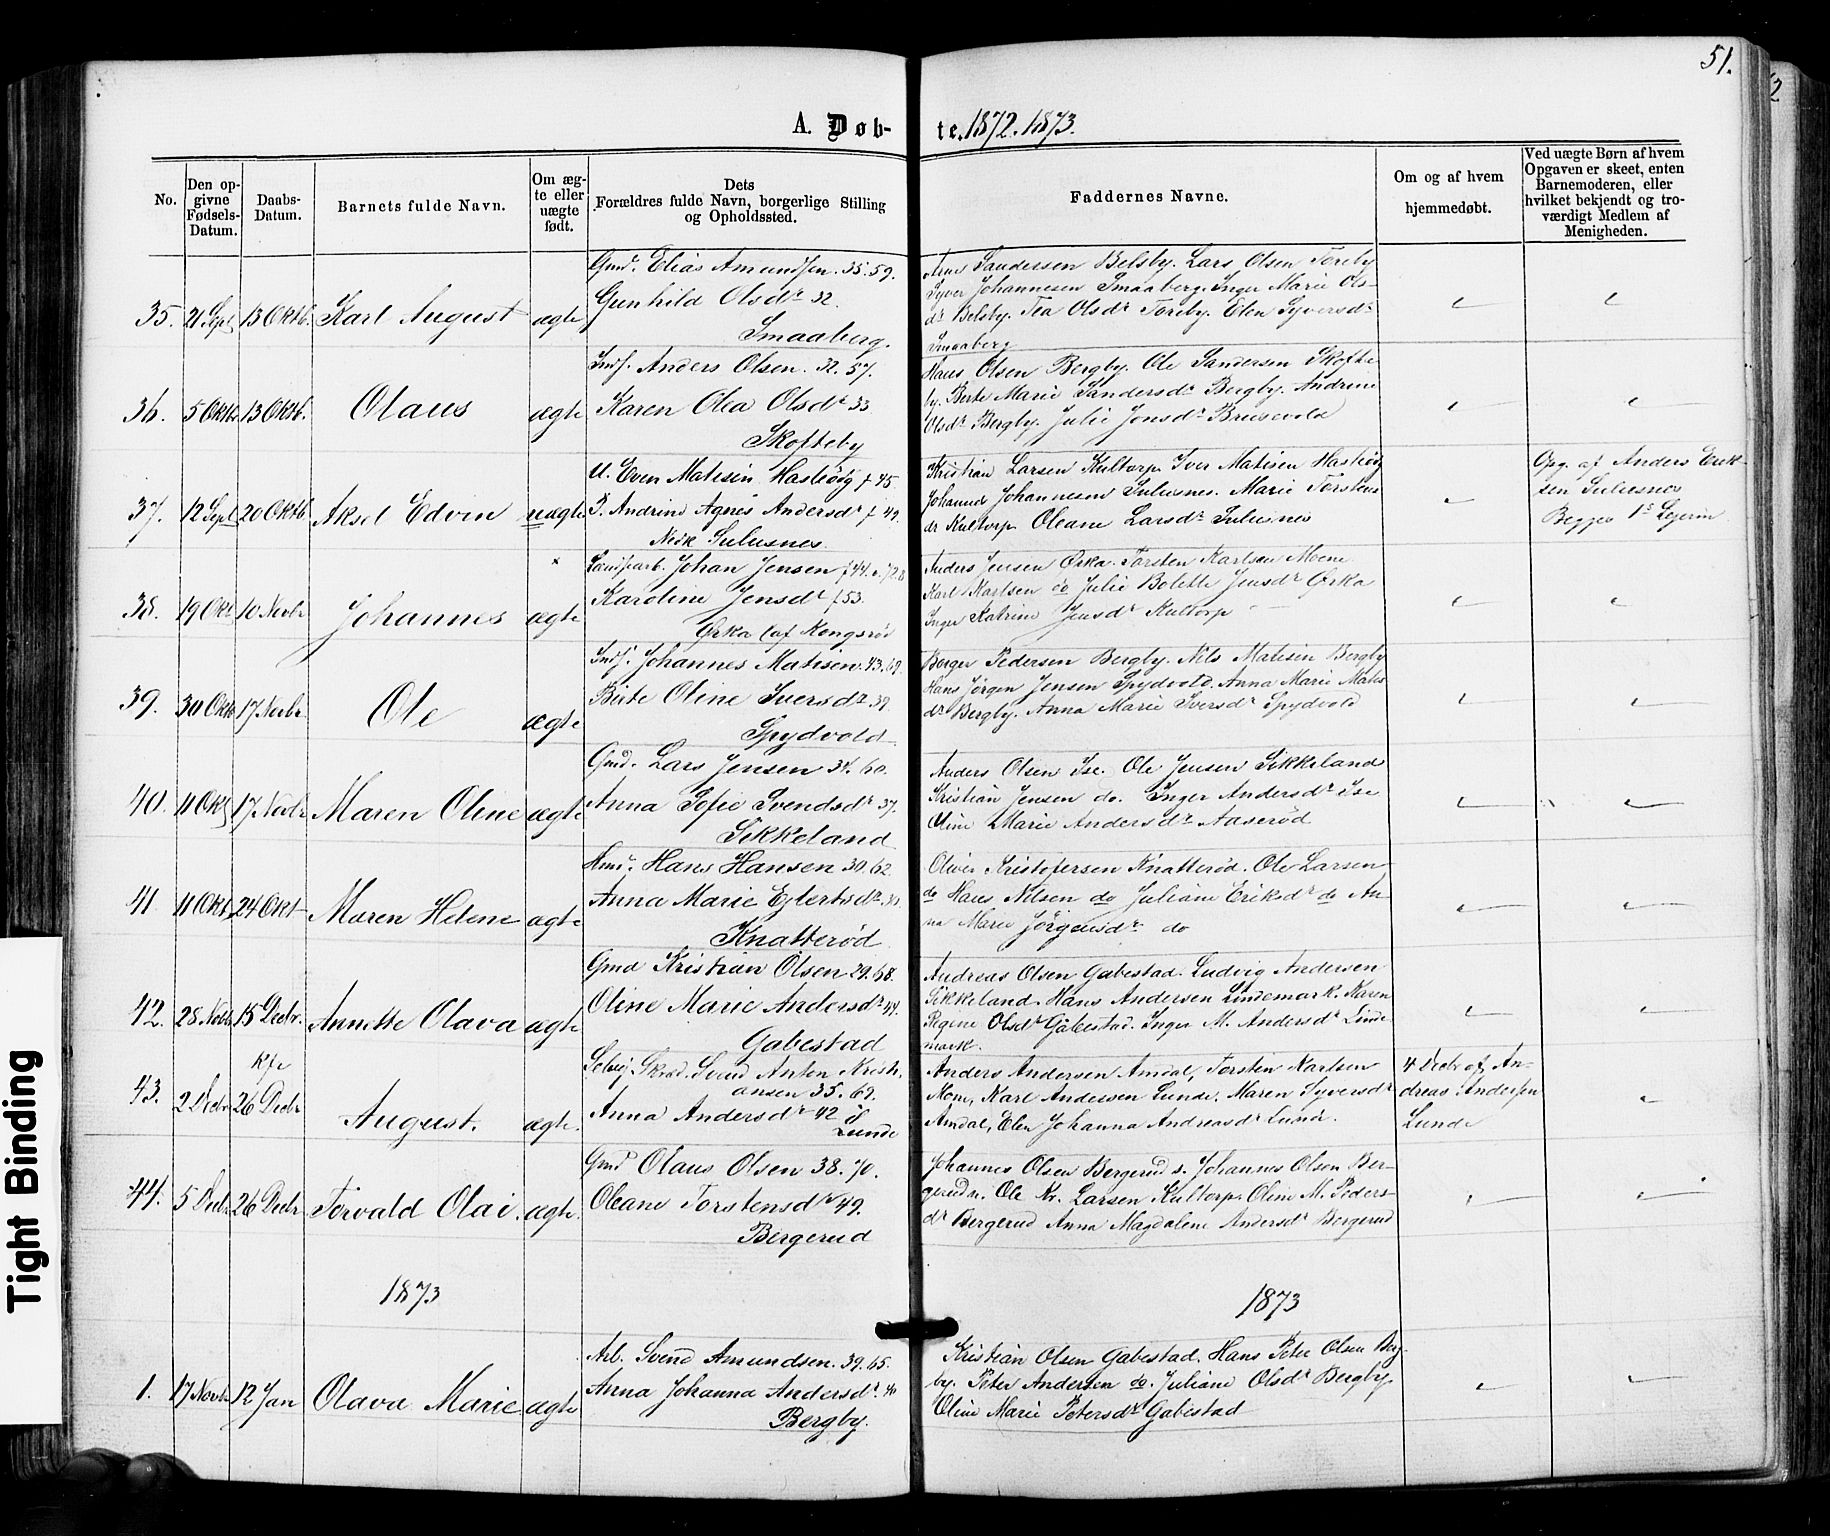 51.
A. Døb-te. 1872. 1873.
No.
Den op-
givne
Fødsels-
Datum.
Daabs-
Datum.
Barnets fulde Navn.
Om æg-
te eller
uægte
født.
Dets
Forældres fulde Navn, borgerlige Stilling
og Opholdssted.
Faddernes Navne.
Om og af hvem
hjemmedøbt.
Ved uægte Børn af hvem
Opgaven er skeet, enten
Barnemoderen, eller
hvilket bekjendt og tro-
værdigt Medlem af
Menigheden.
35. 21 Sept 13 Oktb. Karl August ægte
Gmd. Elias Amundsen. 35. 59.
Gunhild Olsdr 32.
Smaaberg.
Sandersen Belsby. Lars Olsen Toreby
Syver Johannesen Smaaberg. Inger Marie Ols-
dr Belsby. Tea Olsdr Toreby. Elen Syversdr
Smaaberg
36. 5 Oktb 13 Oktb. Olaus ægte
Inds. Anders Olsen. 32. 57.
Karen Olea Olsdr 33
Skofteby
Hans Olsen Bergby. Ole Sandersen Skofte
by. Berte Marie Sandersdr Bergby. Andrine
Olsdr Bergby. Julie Jonsdr Brusevold
37. 12 Sept 20 Oktb. Aksel Edvin uægte
U. Even Matisen Hasliøig f 45.
P. Andrine Agnes Andersdr f 49.
Nedk Sulusnes.
Kristian Larsen Kultorp Iver Matisen Hasliøig
Johannes Johannesen Sulusnes. Marie Torstens
dr Kultorp Oleane Larsdr Sulusnes
Opg. af Anders Erik-
sen Sulusnes
Begges 1s Lejerm
38. 19 Okt 10 Novbr Johannes ægte
Landarb. Johan Jensen f 44.
Karoline Jensdr f 53.
Ørka (af Kongsrød
Anders Jensen Ørka. Torsten Karlsen Moene
Karl Karlsen do Julie Bolette Jensdr Ørka
Inger Katrine Jensdr Kultorp
39. 30 Okt 17 Novbr Ole ægte
Inds. Johannes Matisen 43. 69.
Berte Oline Iversdr 39.
Spydvold
Borger Pedersen Bergby. Nils Matisen Bergby
Hans Jørgen Jensen Spydvold. Anna Marie Matis
dr Bergby. Anna Marie Iversdr Spydvold
40. 11 Okt 17 Novbr Maren Oline ægte
Gmd. Lars Jensen 34. 60.
Anna Sofie Svendsdr 37.
Sikkeland
Anders Olsen Ise. Ole Jensen Sikkeland
Kristian Jensen do. Inger Andersdr Ise
Oline Marie Andersdr Aaserød
41. 11 Okt 24 Okt Maren Helene ægte
Hmd. Hans Hansen 30. 62.
Anna Marie Eglertsdr
Knatterød
Oliver Kristofersen Knatterød. Ole Larsen
do Hans Nilsen do Juliane Eriksdr do An-
na Marie Jørgensdr do
42. 28 Novb 15 Decbr. Annette Olava ægte
Gmd Kristian Olsen 29. 68.
Oline Marie Andersdr 44.
Gabestad
Andreas Olsen Gabestad. Ludvig Andersen
Sikkeland. Hans Andersen Lindemark. Karen
Regine Olsdr Gabestad. Inger M. Andersdr Linde
mark.
43. 2 Decbr 26 Decbr August. ægte.
Selvej Skræd. Svend Anton Kristi-
ansen 35. 69.
Anna Andersdr 42
Lunde
Anders Andersen Amdal, Torsten Karlsen
Moen, Karl Andersen Lunde, Maren Syversdr
Amdal, Elen Johanna Andreasdr Lunde.
4 Decbr af An-
dreas Andersen
Lunde
44. 5 Decbr 26 Decbr Torvald Olai. ægte.
Gmd Olaus Olsen 38. 70.
Oleane Torstensdr 49.
Bergerud
Johannes Olsen Bergerud s. Johannes Olsen Ber-
gerud n. Ole Kr. Larsen Kultorp. Oline M. Peders-
dr Bergerud Anna Magdalene Andersdr Bergerud
1873
1873
1. 17 Novbr 12 Jan Olava Marie ægte
Arb. Svend Amundsen. 39. 65.
Anna Johanna Andersdr. 40
Bergby.
Kristian Olsen Gabestad. Hans Peter Olsen Berg-
by. Peter Andersen do. Juliane Olsdr Bergby
Oline Marie Petersdr Gabestad
Tight Binding